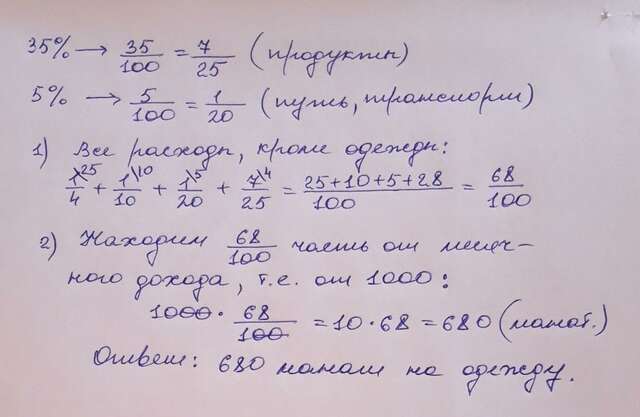 35% → 35/100 = 7/25 (продукты)
5% → 5/100 = 1/20 (путь, транспорт)
1) Все расходы, кроме одежды:
1\25/4 + 1\10/10 + 1\5/20 + 7\4/25 = 25+10+5+28/100 = 68/100
2) Находим 68/100 часть от месяч-
ного дохода, т.е. от 1000:
1000 · 68/100 = 10 · 68 = 680 (манат.)
Ответ: 680 манат на одежду.